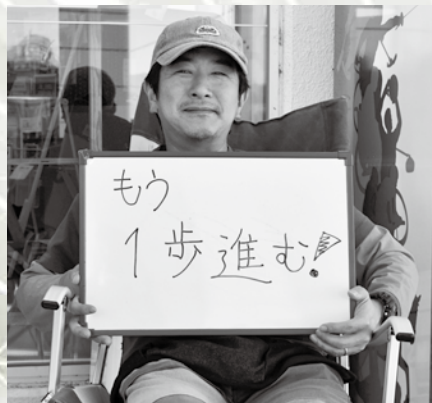 もう
1歩進む!